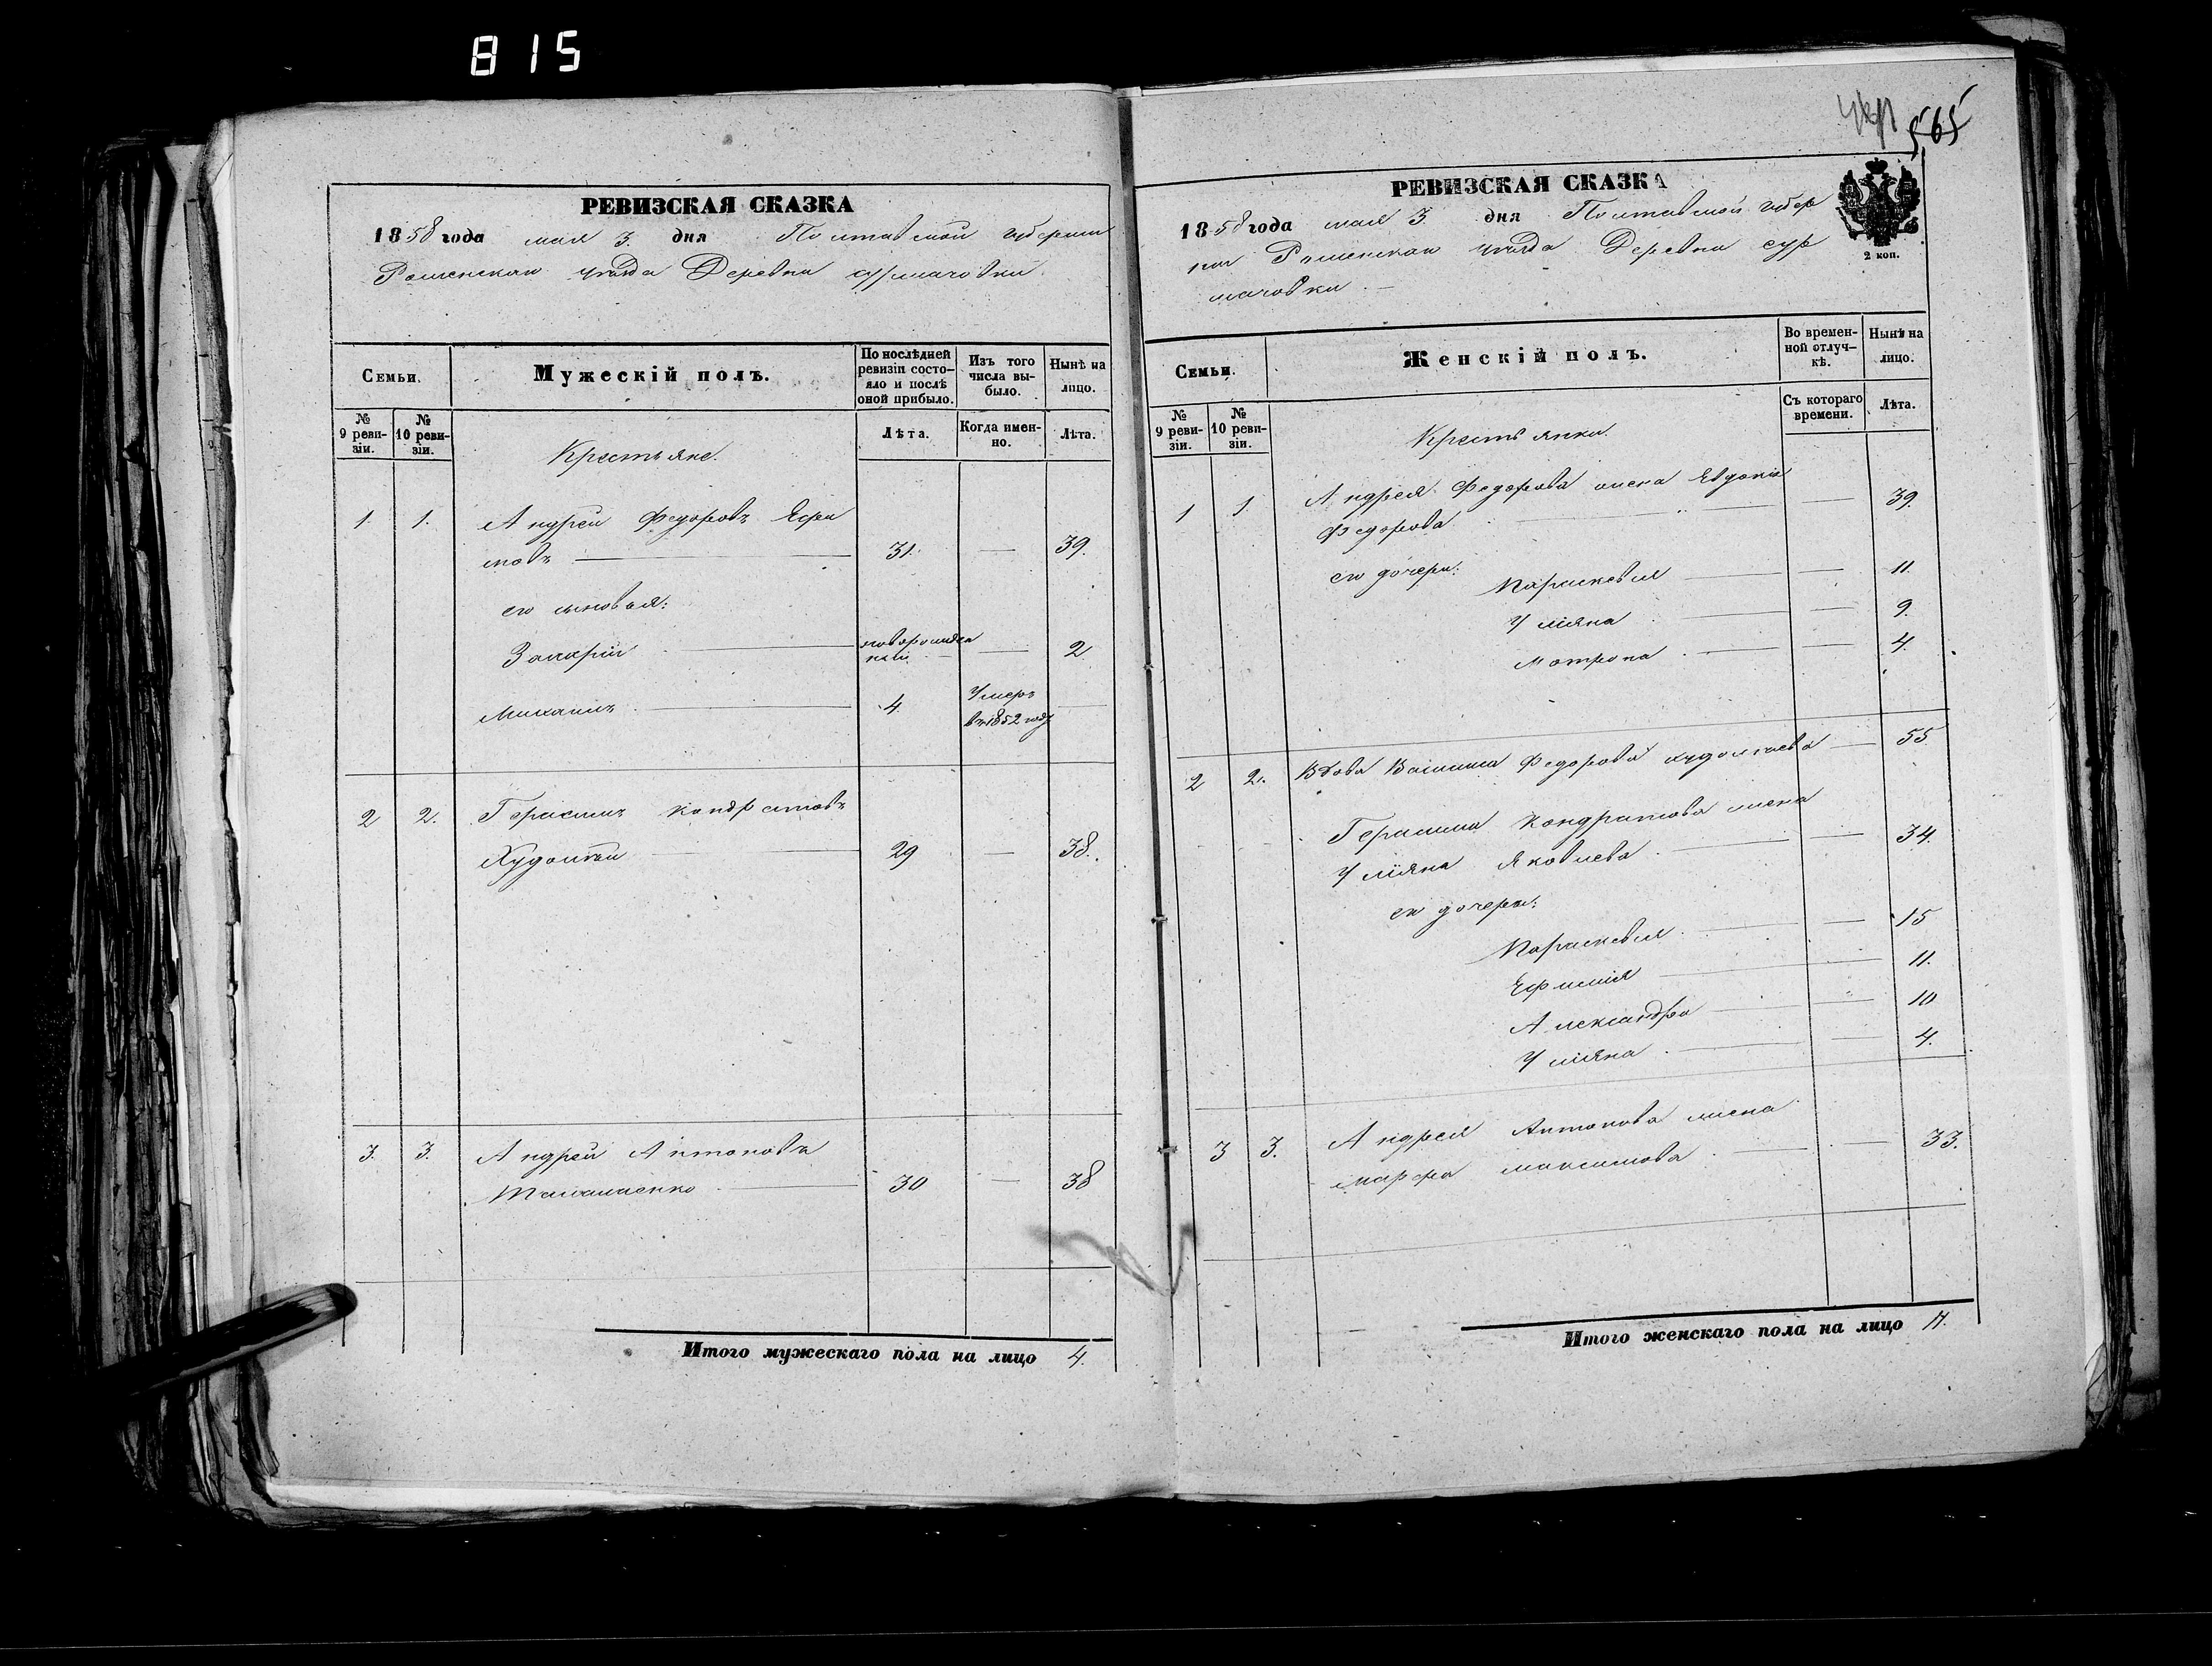 815
565
РЕВИЗСКАЯ СКАЗКА
1858 года мая 3. дня Полтавской губернии
Роменскаго уѣзда Деревни Сурмачовки
Семьи.
Мужескій полъ.
По послѣдней ревизіи состояло и послѣ оной прибыло.
Изъ того числа выбыло.
Нынѣ на лицо.
№ 9 ревизіи.
№ 10 ревизіи.
Лѣта.
Когда именно.
Лѣта.
Крестьяне.
1. 1. Андрей Федоровъ Ефи
мовъ 31. — 39.
его сыновья:
Захарій новорожден
ный — 2
Михаилъ 4. Умеръ
въ 1852 году
2 2. Герасимъ Кондратовъ
Худолѣй 29 — 38.
3. 3. Андрей Антоновъ
30 — 38
Итого мужескаго пола на лицо 4.
РЕВИЗСКАЯ СКАЗКА
1858 года мая 3. дня Полтавской губер
нии Роменскаго уѣзда Деревни Сур
мачовки. —
2 коп.
Семьи.
Женскій полъ.
Во временной отлучкѣ.
Нынѣ на лицо.
№ 9 ревизіи.
№ 10 ревизіи.
Съ котораго времени.
Лѣта.
Крестьянки.
1 1. Андрея Федорова жена Евдокія
Федорова — 39.
его дочери: Параскевія — 11.
Уліяна — 9.
Мотрона — 4.
2 2. Вдова Федорова Худолѣева — 55
Герасима Кондратова жена
Уліяна Яковлева — 34.
его дочери:
Параскевія — 15
Ефимія — 11.
Александра — 10
Уліяна — 4.
3 3. Андрея Антонова жена
Марфа Максимова — 33.
Итого женскаго пола на лицо 11.